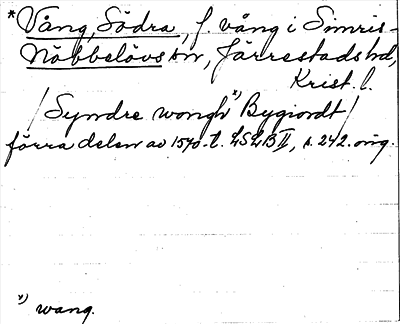 *Vång, Södra, f. vång i Simris-
Nöbbelövs sn, Järrestads hd,
Krist. l.
/Syndre wongh x) Bygiordt/
förra delen av 1540-t. LSLB II, s. 242. orig.
x) wang.